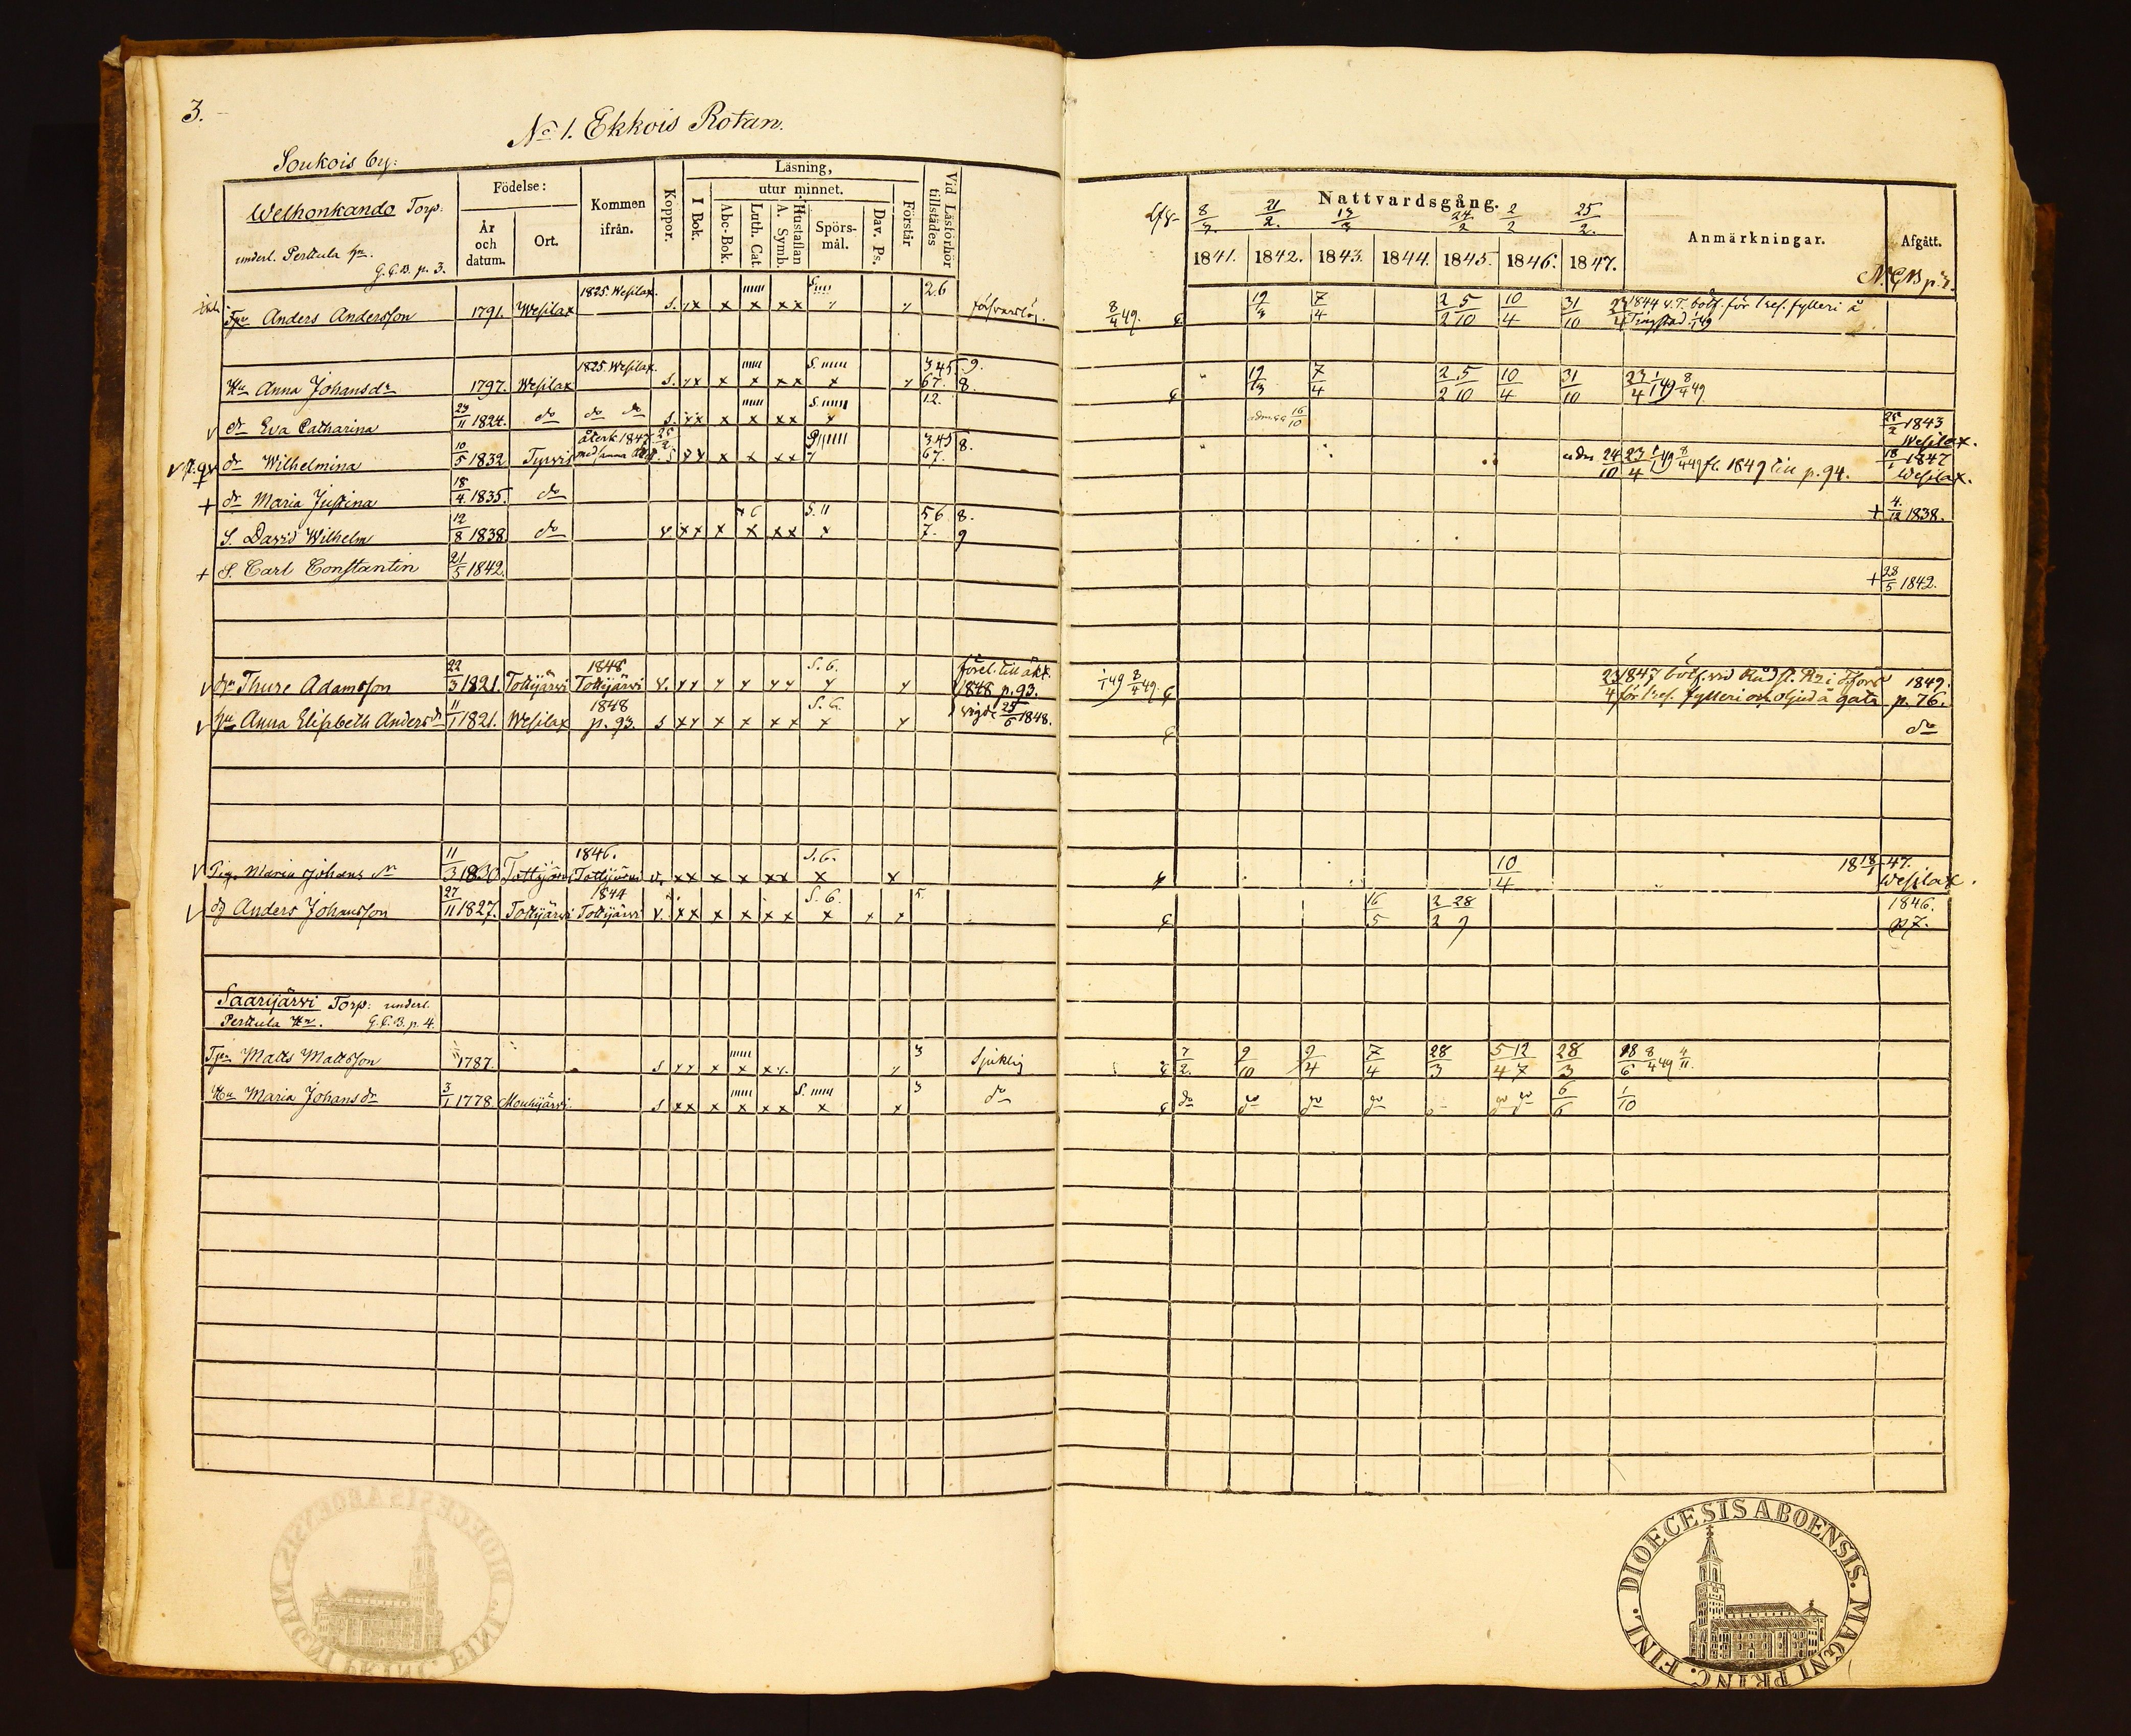 3.
No 1. Ekkois Rotan.
Soukois by:
Welhonkando Torp:
underl. Perttula Hn.
G. C. B. p. 3.
Födelse:
År och datum.
Ort.
Kommen ifrån.
Koppor.
Läsning,
I Bok.
utur minnet.
Abc-Bok.
Luth. Cat.
A. Symb.
Hustaflan
Spörs-mål.
Dav. Ps.
Förstår
Vid Läsförhör tillstädes
Nattvardsgång.
8/2. 21/2. 24/2 2/2 25/2.
1841. 1842. 1843. 1844. 1845. 1846. 1847.
Anmärkningar.
Afgått.
N. C. B p.
Anders Andersson 1791. Wesilax 1825. Wesilax. s. x x x x x 26 8/4 49. 19/3 7/4 2/2 5/10 10/4 31/10 23/4 1844 v. T. bötf. för 1 res. fylleri å
Tingstad 1/1 49
Hu Anna Johansdr 1797. Wesilax 1825. Wesilax. s. x x x x x x 345. 9.
67. 8. 19/3 7/4 2/2 5/10 10/4 31/10 23/4 1/1 49 8/4 49
dr Eva Catharina 23/11 1824. do do do s. x x x x x x x 12. 16/10 25/2 1843
Wesilax.
dr Wilhelmina 10/5 1832 Tyrvis återk 1847 25/2 x x x x x x 345 8.
67. 24/10 23/4 1/1 49 8/4 49 fl. 1849 till p. 94. 18/1 1847
Wesilax.
+ dr Maria Justina 18/4 1835. do + 4/12 1838.
S. David Wilhelm 12/8 1838 do v x x x x x x x S. 11 56 8.
7. 9
+ S. Carl Constantin 21/5 1842. + 28/5 1842.
v Thure Adamsson 22/3 1821. Tottijärvi 1848 Tottijärvi v. S. 6. förel. till äkt.
1848 p. 93. 1/1 49 8/4 49. 23/4 1847 bötf. vid Rådst. Rr i Tfors
för 1 res. fylleri och oljud å gata 1849.
p. 76.
v Hu Anna Elisabeth Andersdr 11/1 1821. Wesilax 1848 p. 93. s x x x x x x x S. 6. vigde 25/6 1848. do
v Pig. Maria Johansdr 11/3 1830 Tottijärvi 1846. Tottijärvi v. x x x x x x x x S. 6. 10/4 18 18/1 47.
Wesilax.
v dg Anders Johansson 27/11 1827. Tottijärvi 1844 Tottijärvi v. x x x x x x x x x S. 6. 5. 16/5 2/2 28/9 1846.
p 7.
Saarijärvi Torp: underl.
Perttula Hn. G. C. B. p. 4.
Tpr Matts Mattsson 1787. s x x x x x 3 Sjuklig 7/2. 9/10 9/4 7/4 28/3 5/4 12/7 28/3 18/6 8/4 49 4/11.
Hu Maria Johansdr 3/1 1778 Mouhijärvi. s x x x x x x x x 3 do do do do do do do 6/6 1/10
DIOECESIS ABOENSIS. MAGNI PRINC. FINL.